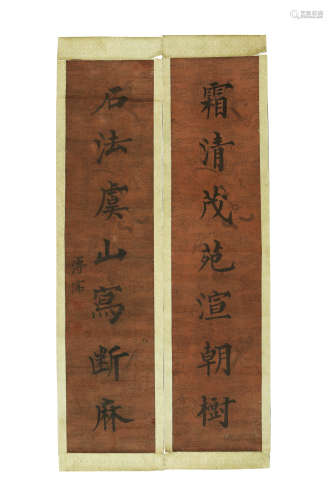 霜清茂苑渲朝樹
石法虞山寫斷麻
溥儒